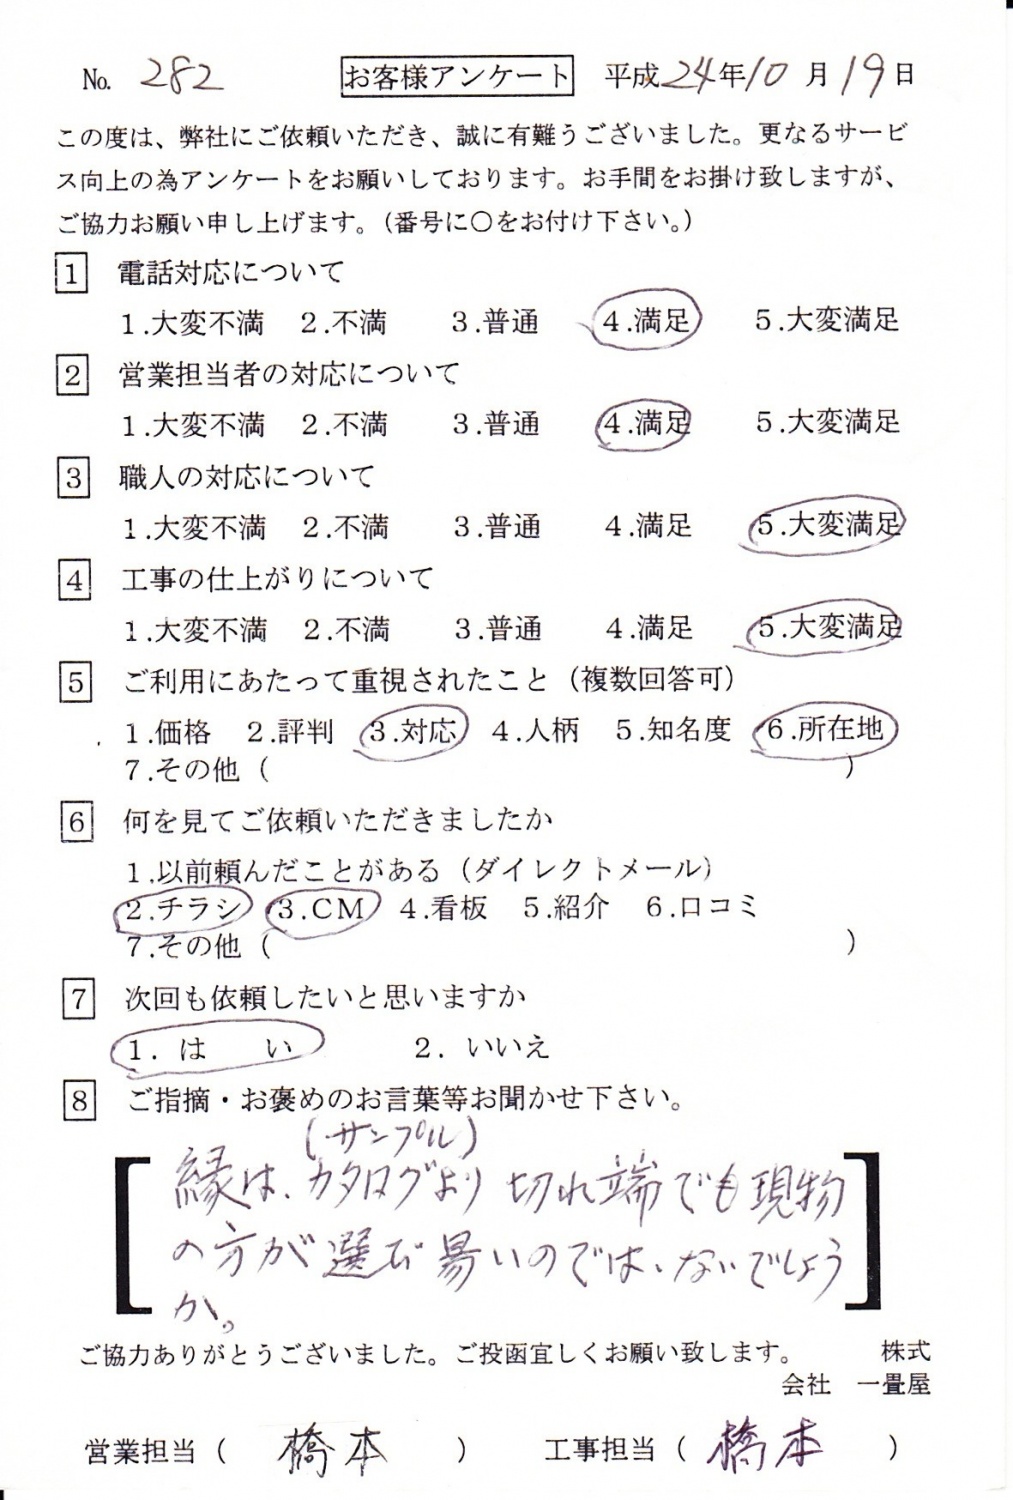 No. 282 お客様アンケート 平成24年10月19日
この度は、弊社にご依頼いただき、誠に有難うございました。更なるサービ
ス向上の為アンケートをお願いしております。お手間をお掛け致しますが、
ご協力お願い申し上げます。（番号に○をお付け下さい。）
1 電話対応について
1.大変不満 2.不満 3.普通 4.満足 5.大変満足
2 営業担当者の対応について
1.大変不満 2.不満 3.普通 4.満足 5.大変満足
3 職人の対応について
1.大変不満 2.不満 3.普通 4.満足 5.大変満足
4 工事の仕上がりについて
1.大変不満 2.不満 3.普通 4.満足 5.大変満足
5 ご利用にあたって重視されたこと（複数回答可）
1.価格 2.評判 3.対応 4.人柄 5.知名度 6.所在地
7.その他（ ）
6 何を見てご依頼いただきましたか
1.以前頼んだことがある（ダイレクトメール）
2.チラシ 3.CM 4.看板 5.紹介 6.口コミ
7.その他（ ）
7 次回も依頼したいと思いますか
1. は い 2. いいえ
8 ご指摘・お褒めのお言葉等お聞かせ下さい。
(サンプル)
縁は、カタログより 切れ端でも現物
の方が選び易いのでは、ないでしょう
か。
ご協力ありがとうございました。ご投函宜しくお願い致します。 株式
会社 一畳屋
営業担当（ 橋本 ） 工事担当（ 橋本 ）